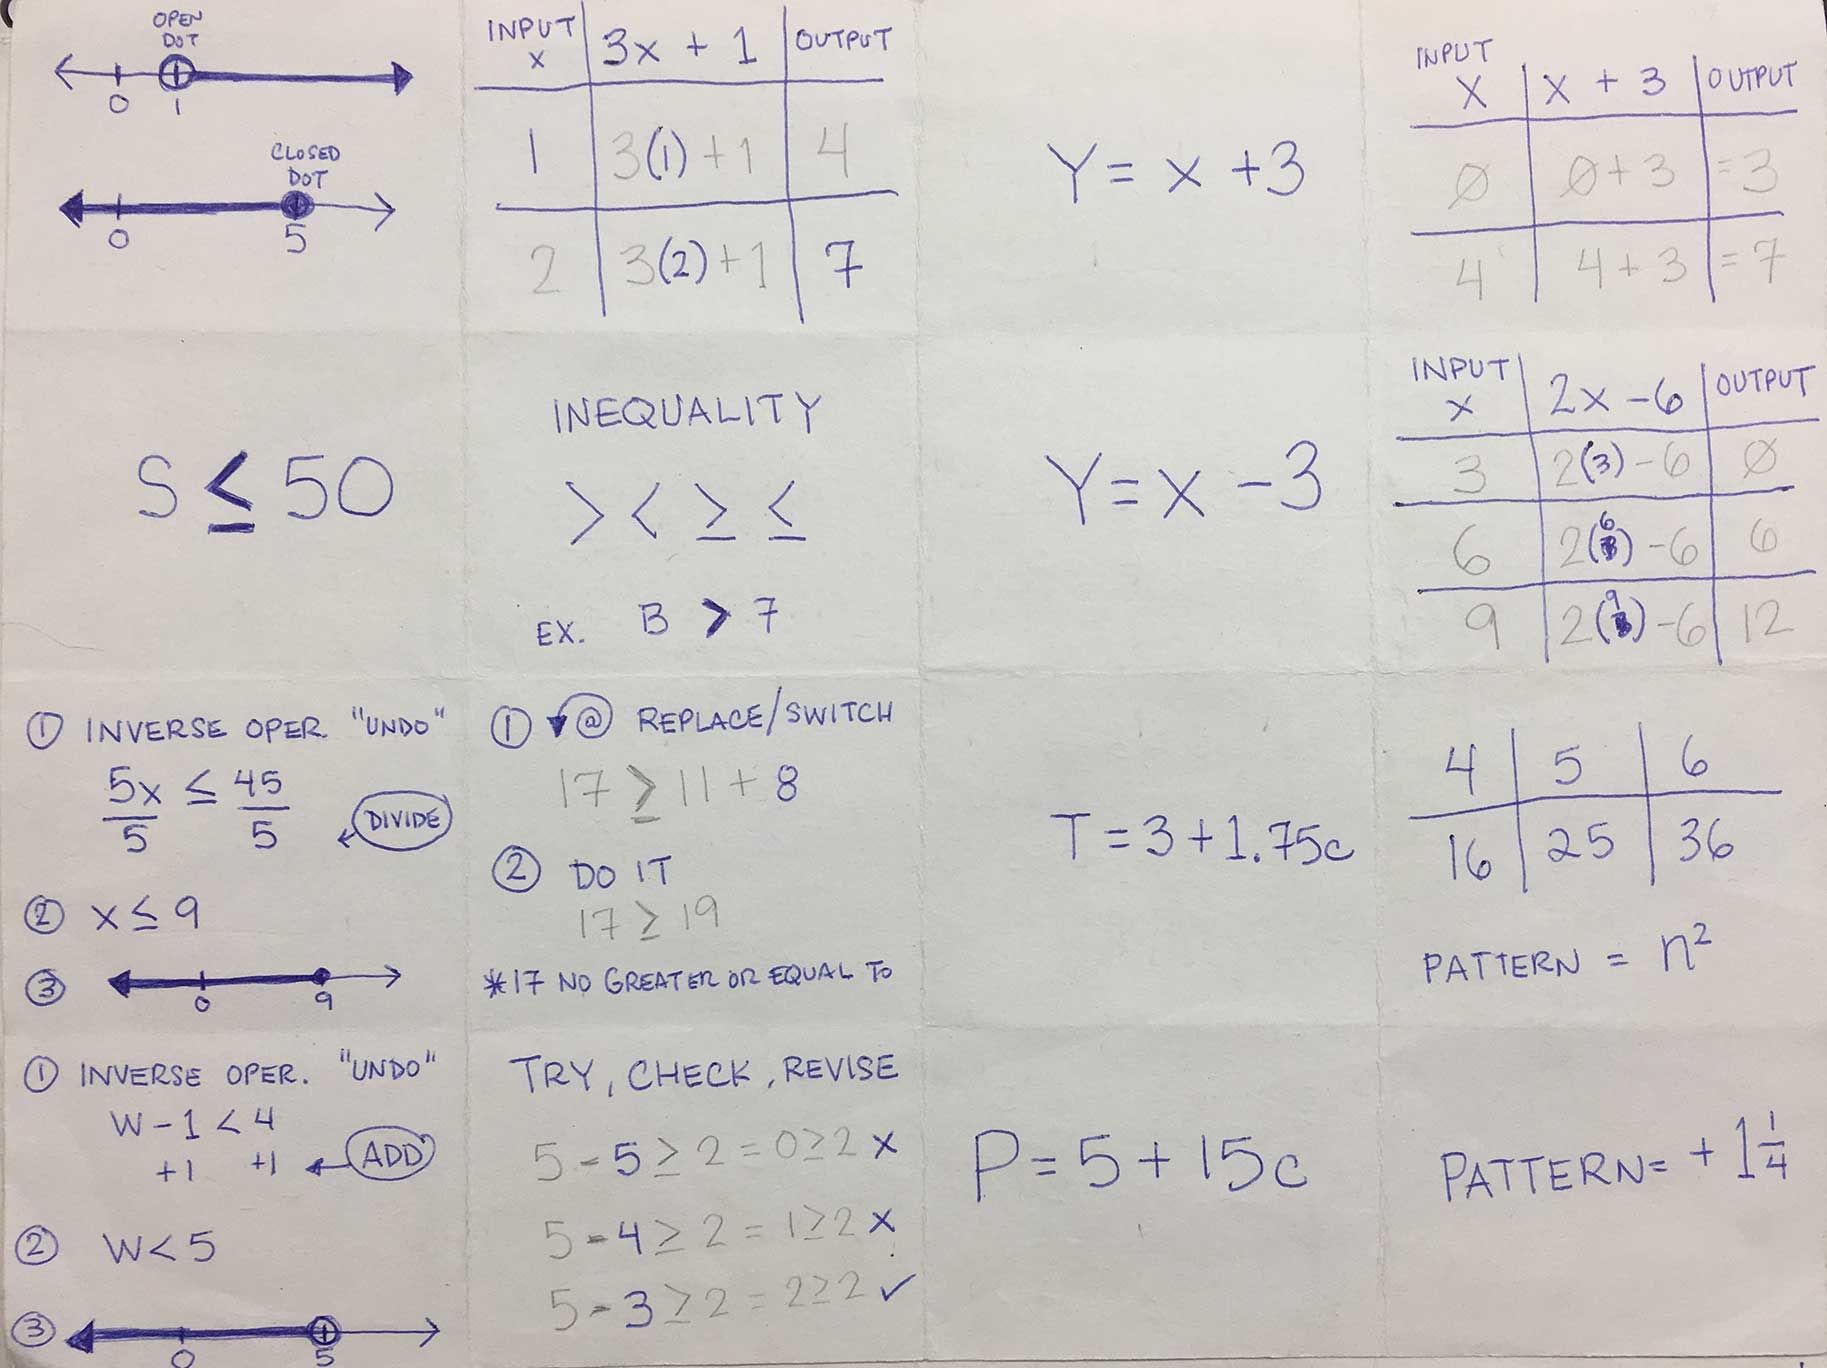 OPEN
DOT
0 1
CLOSED
DOT
0 5
INPUT
x | 3x + 1 | OUTPUT
1 | 3(1) + 1 | 4
2 | 3(2) + 1 | 7
Y = x + 3
INPUT
X | x + 3 | OUTPUT
Ø | Ø + 3 | = 3
4 | 4 + 3 | = 7
S ≤ 50
INEQUALITY
> < ≥ ≤
EX. B > 7
Y = x - 3
INPUT
x | 2x - 6 | OUTPUT
3 | 2(3) - 6 | Ø
6 | 2(6) - 6 | 6
9 | 2(9) - 6 | 12
① INVERSE OPER. "UNDO"
5x ≤ 45
5 5 DIVIDE
② x ≤ 9
③ 0 9
① @ REPLACE/SWITCH
17 ≥ 11 + 8
② DO IT
17 ≥ 19
*17 NO GREATER OR EQUAL TO
T = 3 + 1.75c
4 | 5 | 6
16 | 25 | 36
PATTERN = n²
① INVERSE OPER. "UNDO"
W - 1 < 4
+1 +1 ADD
② W < 5
③ 0 5
TRY, CHECK, REVISE
5 - 5 ≥ 2 = 0 ≥ 2 x
5 - 4 ≥ 2 = 1 ≥ 2 x
5 - 3 ≥ 2 = 2 ≥ 2 ✓
P = 5 + 15c
PATTERN = + 1 1/4